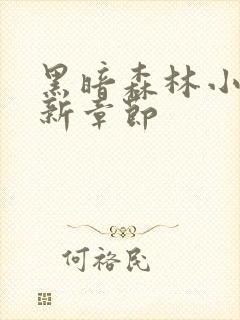 黑暗森林小
新章節
何裕民